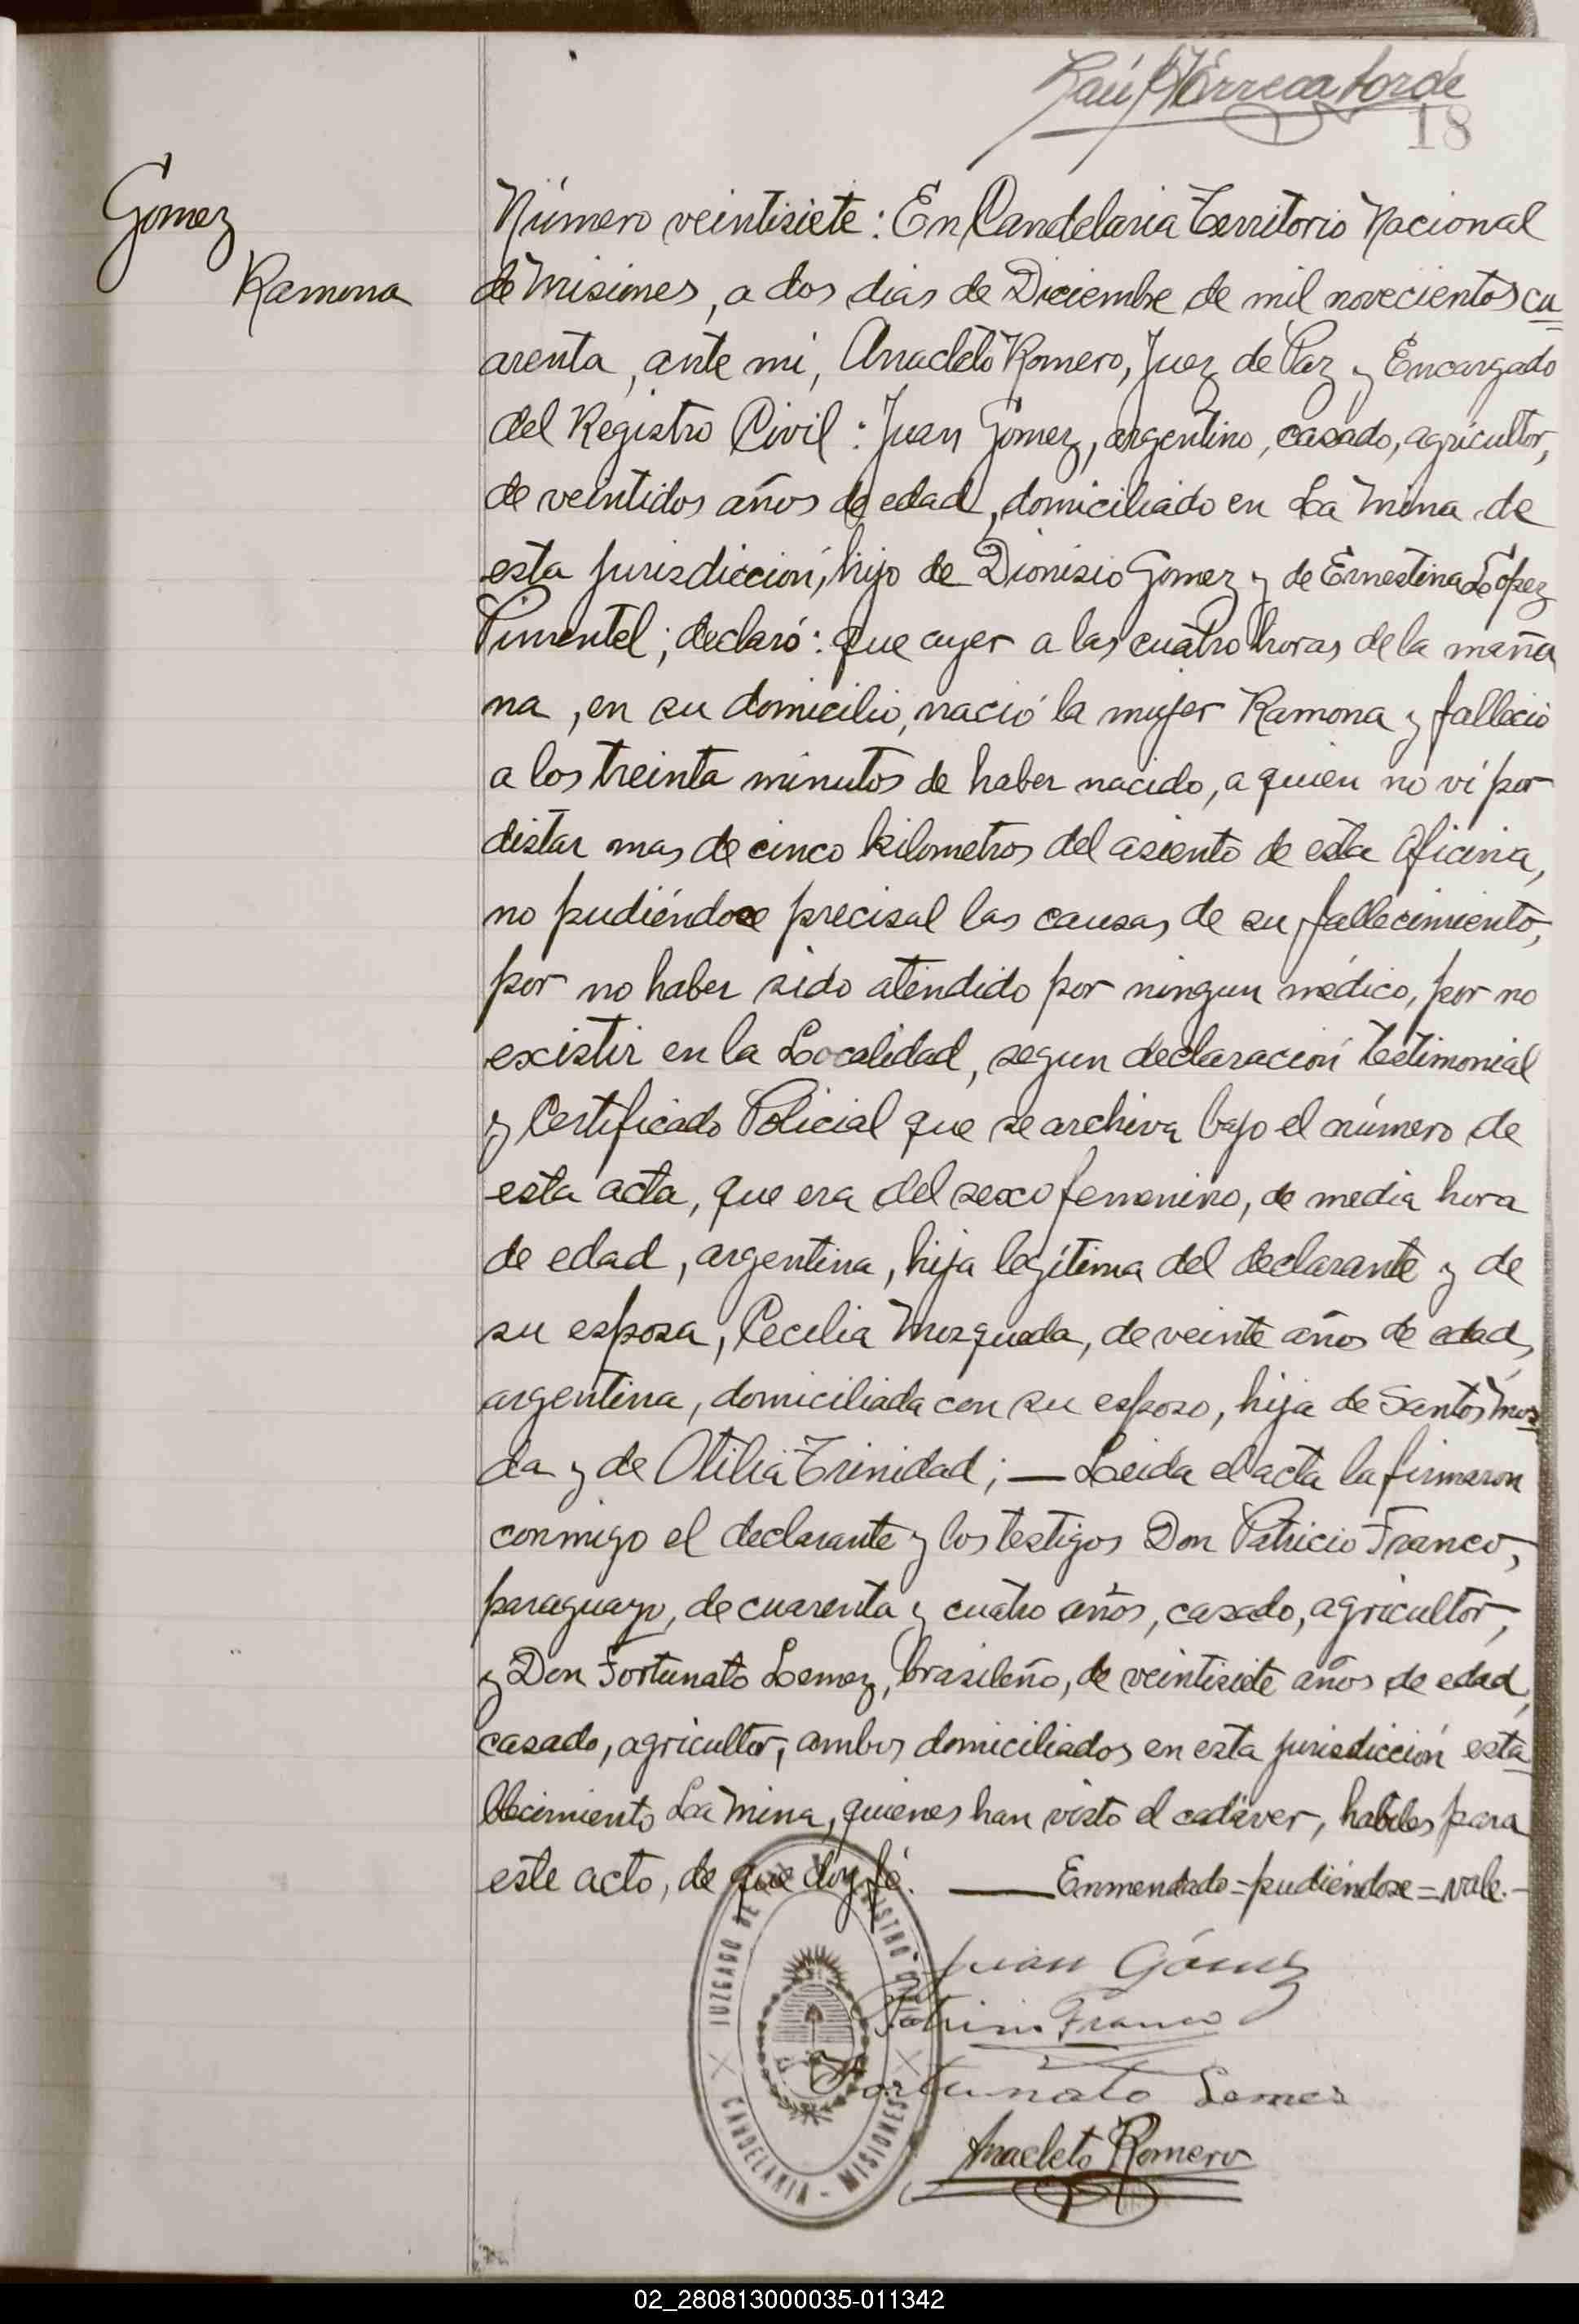 Raúl
18
Gomez
Ramona
Número veintisiete: En Candelaria Territorio Nacional
de Misiones, a dos dias de Diciembre de mil novecientos cu
arenta, ante mi, Anacleto Romero, Juez de Paz y Encargado
del Registro Civil: Juan Gomez, argentino, casado, agricultor,
de veintidos años de edad, domiciliado en La Mina de
esta jurisdiccion, hijo de Dionisio Gomez y de Ernestina Lopez
Pimentel; declaró: que ayer a las cuatro horas de la maña
na, en su domicilio, nació la mujer Ramona y falleció
a los treinta minutos de haber nacido, a quien no ví por
distar mas de cinco kilometros del asiento de esta Oficina,
no pudiéndose precisal las causas de su fallecimiento,
por no haber sido atendido por ningun médico, por no
existir en la Localidad, segun declaración testimonial
y Certificado Policial que se archiva bajo el número de
esta acta, que era del sexo femenino, de media hora
de edad, argentina, hija legítima del declarante y de
su esposa, Cecilia Mozqueda, de veinte años de edad,
argentina, domiciliada con su esposo, hija de Santos
da y de Otilia Trinidad; — Leida el acta la firmaron
conmigo el declarante y los testigos Don Patricio Franco,
paraguayo, de cuarenta y cuatro años, casado, agricultor,
y Don Fortunato Lemez, brasileño, de veintisiete años de edad,
casado, agricultor, ambos domiciliados en esta jurisdicción esta
blecimiento La Mina, quienes han visto el cadáver, habiles para
este acto, de que doy fé. — Enmendado=pudiéndose=vale.-
Juan Gómez
Patricio Franco
Fortunato Lemes
Anacleto Romero
JUZGADO DE
CANDELARIA - MISIONES
02_280813000035-011342